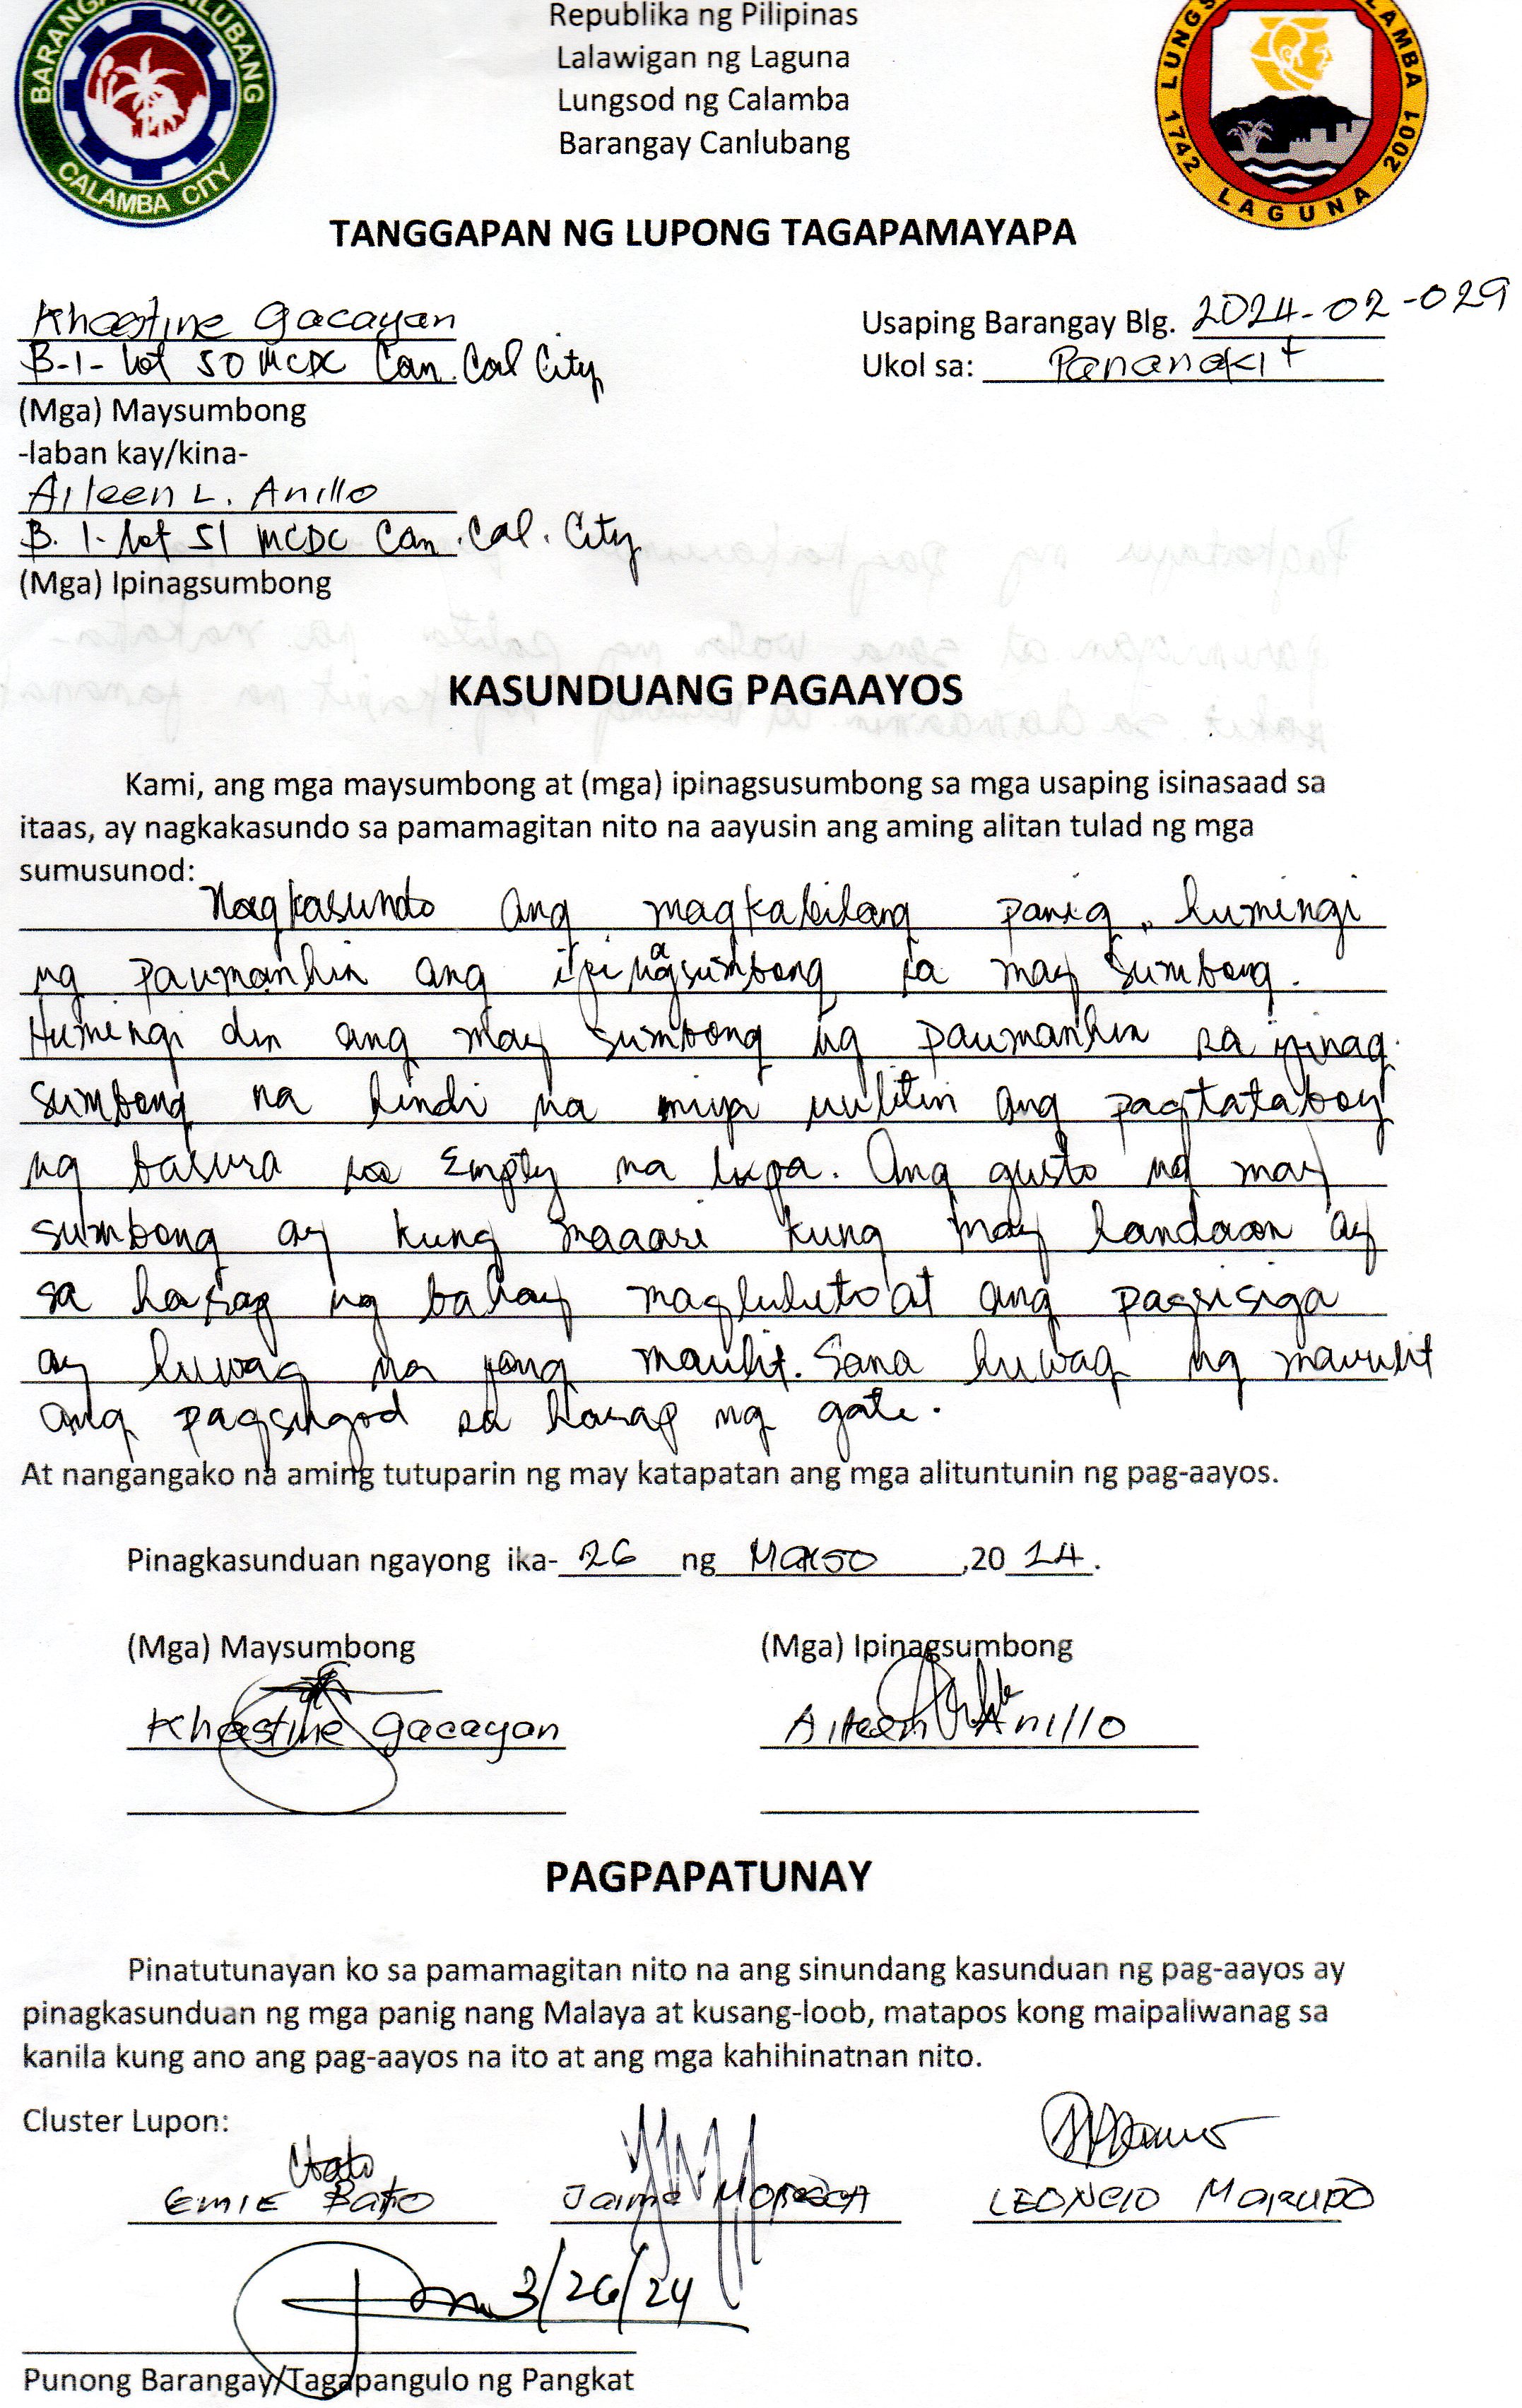 BARANGAY CANLUBANG
CALAMBA CITY
Republika ng Pilipinas
Lalawigan ng Laguna
Lungsod ng Calamba
Barangay Canlubang
LUNGS LAMBA
1742 LAGUNA 2001
TANGGAPAN NG LUPONG TAGAPAMAYAPA
Khastine Gacayan
B-1- lot 50 MCDC Can. Cal City
(Mga) Maysumbong
-laban kay/kina-
Aileen L. Anillo
B. 1- lot 51 MCDC Can. Cal. City
(Mga) Ipinagsumbong
Usaping Barangay Blg. 2024-02-029
Ukol sa: Pananakit
KASUNDUANG PAGAAYOS
Kami, ang mga maysumbong at (mga) ipinagsusumbong sa mga usaping isinasaad sa
itaas, ay nagkakasundo sa pamamagitan nito na aayusin ang aming alitan tulad ng mga
sumusunod:
Nagkasundo ang magkabilang panig, humingi
ng paumanhin ang ipinagsumbong sa may sumbong.
Humingi din ang may sumbong ng paumanhin sa ipinag
sumbong na hindi na uulitin ang pagtataboy
ng basura sa Empty na lupa. Ang gusto ng may
sumbong ay kung maaari kung may handaan ay
sa harap ng bahay magluluto at ang pagsisiga
ay huwag na maulit. Sana huwag ng mauulit
ang pagsugod sa harap ng gate.
At nangangako na aming tutuparin ng may katapatan ang mga alituntunin ng pag-aayos.
Pinagkasunduan ngayong ika- 26 ng Marso ,20 24.
(Mga) Maysumbong (Mga) Ipinagsumbong
Khastine Gacayan Aileen Anillo
PAGPAPATUNAY
Pinatutunayan ko sa pamamagitan nito na ang sinundang kasunduan ng pag-aayos ay
pinagkasunduan ng mga panig nang Malaya at kusang-loob, matapos kong maipaliwanag sa
kanila kung ano ang pag-aayos na ito at ang mga kahihinatnan nito.
Cluster Lupon:
EMIE Bato Jaime LEONCIO
3/26/24
Punong Barangay/Tagapangulo ng Pangkat